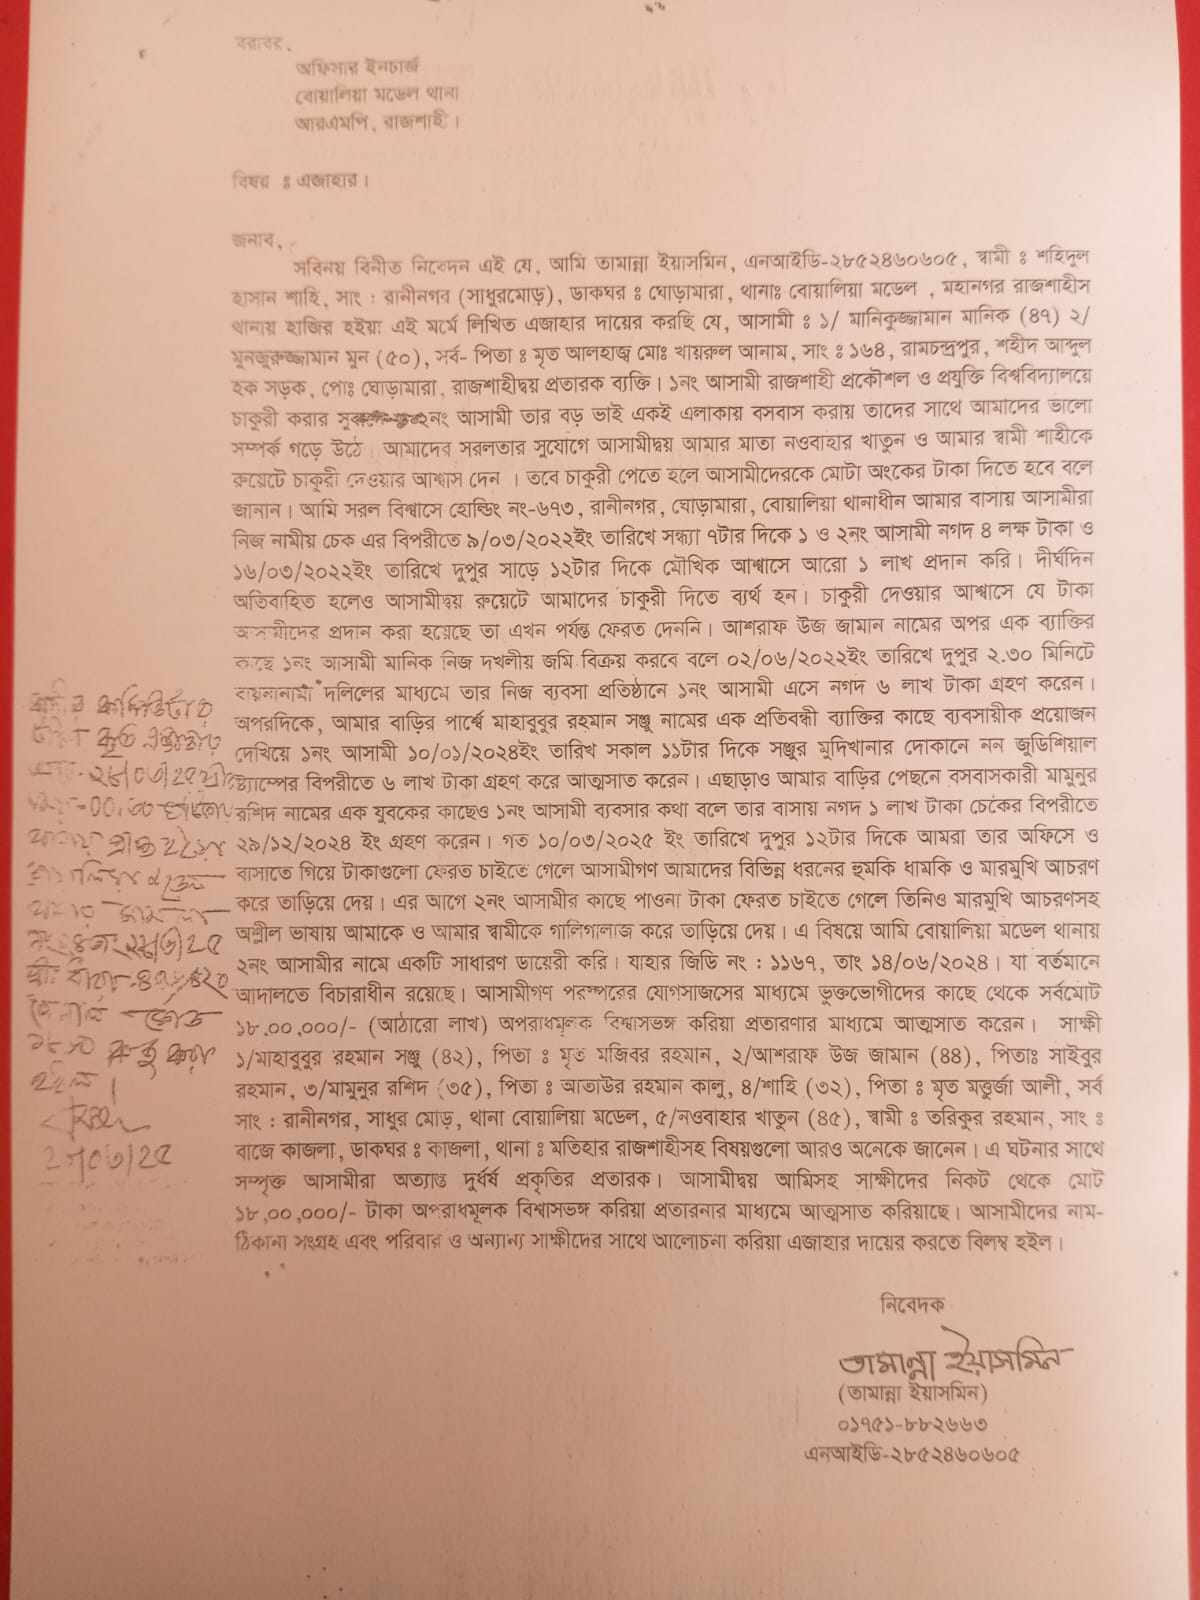 বরাবর,
অফিসার ইনচার্জ
বোয়ালিয়া মডেল থানা
আরএমপি, রাজশাহী।
বিষয় ঃ এজাহার।
জনাব,
সবিনয় বিনীত নিবেদন এই যে, আমি তামান্না ইয়াসমিন, এনআইডি-২৮৫২৪৬০৬০৫, স্বামী ঃ শহিদুল
হাসান শাহি, সাং : রানীনগর (সাধুরমোড়), ডাকঘর ঃ ঘোড়ামারা, থানাঃ বোয়ালিয়া মডেল , মহানগর রাজশাহীস
থানায় হাজির হইয়া এই মর্মে লিখিত এজাহার দায়ের করছি যে, আসামী ঃ ১/ মানিকুজ্জামান মানিক (৪৭) ২/
মুনজুরুজ্জামান মুন (৫০), সর্ব- পিতা ঃ মৃত আলহাজ্ব মোঃ খায়রুল আনাম, সাং ঃ ১৬৪, রামচন্দ্রপুর, শহীদ আব্দুল
হক সড়ক, পোঃ ঘোড়ামারা, রাজশাহীদ্বয় প্রতারক ব্যক্তি। ১নং আসামী রাজশাহী প্রকৌশল ও প্রযুক্তি বিশ্ববিদ্যালয়ে
চাকুরী করার ২নং আসামী তার বড় ভাই একই এলাকায় বসবাস করায় তাদের সাথে আমাদের ভালো
সম্পর্ক গড়ে উঠে। আমাদের সরলতার সুযোগে আসামীদ্বয় আমার মাতা নওবাহার খাতুন ও আমার স্বামী শাহীকে
রুয়েটে চাকুরী দেওয়ার আশ্বাস দেন । তবে চাকুরী পেতে হলে আসামীদেরকে মোটা অংকের টাকা দিতে হবে বলে
জানান। আমি সরল বিশ্বাসে হোল্ডিং নং-৬৭৩, রানীনগর, ঘোড়ামারা, বোয়ালিয়া থানাধীন আমার বাসায় আসামীরা
নিজ নামীয় চেক এর বিপরীতে ৯/০৩/২০২২ইং তারিখে সন্ধ্যা ৭টার দিকে ১ ও ২নং আসামী নগদ ৪ লক্ষ টাকা ও
১৬/০৩/২০২২ইং তারিখে দুপুর সাড়ে ১২টার দিকে মৌখিক আশ্বাসে আরো ১ লাখ প্রদান করি। দীর্ঘদিন
অতিবাহিত হলেও আসামীদ্বয় রুয়েটে আমাদের চাকুরী দিতে ব্যর্থ হন। চাকুরী দেওয়ার আশ্বাসে যে টাকা
আসামীদের প্রদান করা হয়েছে তা এখন পর্যন্ত ফেরত দেননি। আশরাফ উজ জামান নামের অপর এক ব্যাক্তির
কাছে ১নং আসামী মানিক নিজ দখলীয় জমি বিক্রয় করবে বলে ০২/০৬/২০২২ইং তারিখে দুপুর ২.৩০ মিনিটে
বায়নানামা দলিলের মাধ্যমে তার নিজ ব্যবসা প্রতিষ্ঠানে ১নং আসামী এসে নগদ ৬ লাখ টাকা গ্রহণ করেন।
অপরদিকে, আমার বাড়ির পার্শ্বে মাহাবুবুর রহমান সঞ্জু নামের এক প্রতিবন্ধী ব্যাক্তির কাছে ব্যবসায়ীক প্রয়োজন
দেখিয়ে ১নং আসামী ১০/০১/২০২৪ইং তারিখ সকাল ১১টার দিকে সঞ্জুর মুদিখানার দোকানে নন জুডিশিয়াল
ষ্ট্যাম্পের বিপরীতে ৬ লাখ টাকা গ্রহণ করে আত্মসাত করেন। এছাড়াও আমার বাড়ির পেছনে বসবাসকারী মামুনুর
রশিদ নামের এক যুবকের কাছেও ১নং আসামী ব্যবসার কথা বলে তার বাসায় নগদ ১ লাখ টাকা চেকের বিপরীতে
২৯/১২/২০২৪ ইং গ্রহণ করেন। গত ১০/০৩/২০২৫ ইং তারিখে দুপুর ১২টার দিকে আমরা তার অফিসে ও
বাসাতে গিয়ে টাকাগুলো ফেরত চাইতে গেলে আসামীগণ আমাদের বিভিন্ন ধরনের হুমকি ধামকি ও মারমুখি আচরণ
করে তাড়িয়ে দেয়। এর আগে ২নং আসামীর কাছে পাওনা টাকা ফেরত চাইতে গেলে তিনিও মারমুখি আচরণসহ
অশ্লীল ভাষায় আমাকে ও আমার স্বামীকে গালিগালাজ করে তাড়িয়ে দেয়। এ বিষয়ে আমি বোয়ালিয়া মডেল থানায়
২নং আসামীর নামে একটি সাধারণ ডায়েরী করি। যাহার জিডি নং : ১১৬৭, তাং ১৪/০৬/২০২৪। যা বর্তমানে
আদালতে বিচারাধীন রয়েছে। আসামীগণ পরস্পরের যোগসাজসের মাধ্যমে ভুক্তভোগীদের কাছে থেকে সর্বমোট
১৮,০০,০০০/- (আঠারো লাখ) অপরাধমূলক বিশ্বাসভঙ্গ করিয়া প্রতারণার মাধ্যমে আত্মসাত করেন। সাক্ষী
১/মাহাবুবুর রহমান সঞ্জু (৪২), পিতা ঃ মৃত মজিবর রহমান, ২/আশরাফ উজ জামান (৪৪), পিতাঃ সাইবুর
রহমান, ৩/মামুনুর রশিদ (৩৫), পিতা ঃ আতাউর রহমান কালু, ৪/শাহি (৩২), পিতা ঃ মৃত মর্ত্তুজা আলী, সর্ব
সাং : রানীনগর, সাধুর মোড়, থানা বোয়ালিয়া মডেল, ৫/নওবাহার খাতুন (৪৫), স্বামী ঃ তরিকুর রহমান, সাং ঃ
বাজে কাজলা, ডাকঘর ঃ কাজলা, থানা ঃ মতিহার রাজশাহীসহ বিষয়গুলো আরও অনেকে জানেন। এ ঘটনার সাথে
সম্পৃক্ত আসামীরা অত্যান্ত দুর্ধর্ষ প্রকৃতির প্রতারক। আসামীদ্বয় আমিসহ সাক্ষীদের নিকট থেকে মোট
১৮,০০,০০০/- টাকা অপরাধমূলক বিশ্বাসভঙ্গ করিয়া প্রতারনার মাধ্যমে আত্মসাত করিয়াছে। আসামীদের নাম-
ঠিকানা সংগ্রহ এবং পরিবার ও অন্যান্য সাক্ষীদের সাথে আলোচনা করিয়া এজাহার দায়ের করতে বিলম্ব হইল।
নিবেদক
তামান্না ইয়াসমিন
(তামান্না ইয়াসমিন)
০১৭৫১-৮৮২৬৬৩
এনআইডি-২৮৫২৪৬০৬০৫